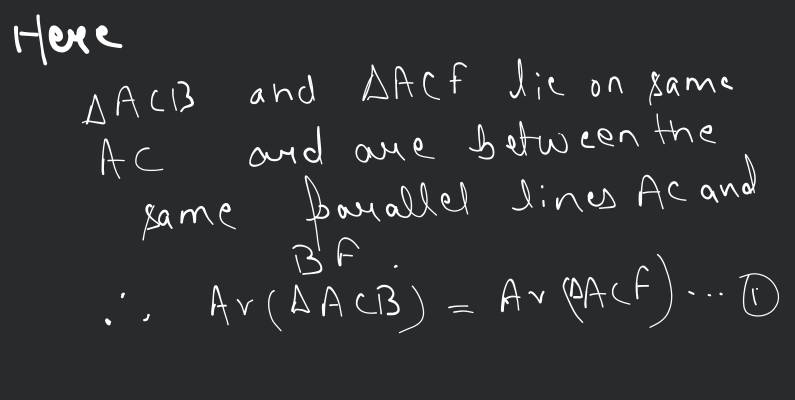 Here
ΔACB and ΔACF lie on same
AC and are between the
same parallel lines AC and
BF.
∴ Ar(ΔACB) = Ar(ΔACF) ... ①